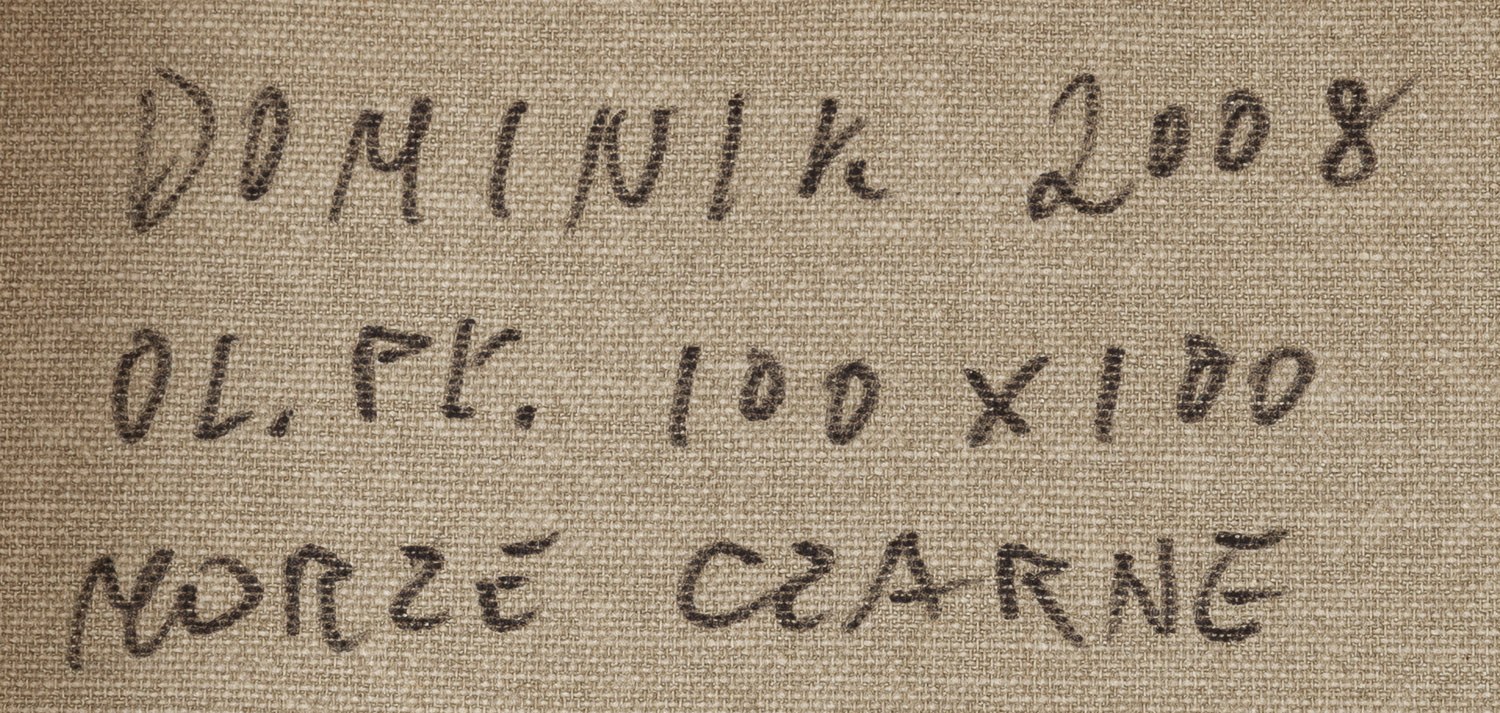 DOMINIK 2008
OL. PŁ. 100 X 100
MORZE CZARNE